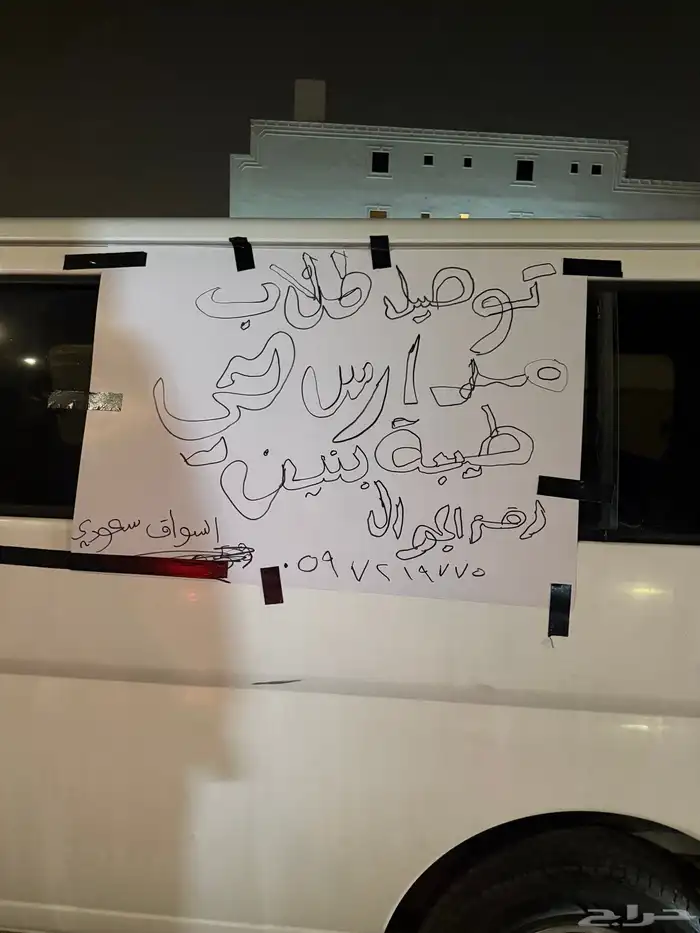 توصيل طلاب
مدارس حي
طيبة بنين
رقم الجوال
اسواق سعودي
٠٥٩٧٢١٩٧٧٥
حراج